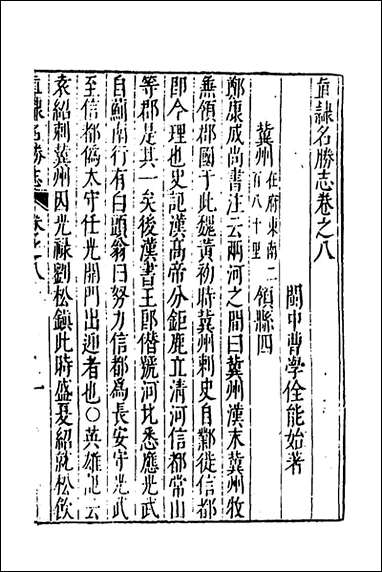 直隷名勝志卷之八
閩中曹學佺能始著
冀州 在府東南二百八十里 領縣四
鄭康成尚書注云兩河之間曰冀州漢末冀州牧
無領郡國于此魏黃初時冀州刺史自鄴徙信都
即今理也史記漢高帝分鉅鹿立清河信都常山
等郡是其一矣後漢書王郎僭號河北悉應光武
自薊南行有白頭翁曰努力信都爲長安守光武
至信都僞太守任光開門出迎者也○英雄記云
袁紹刺冀州因光祿劉松鎮此時盛夏紹就松飲
直隷名勝志 卷之八 一